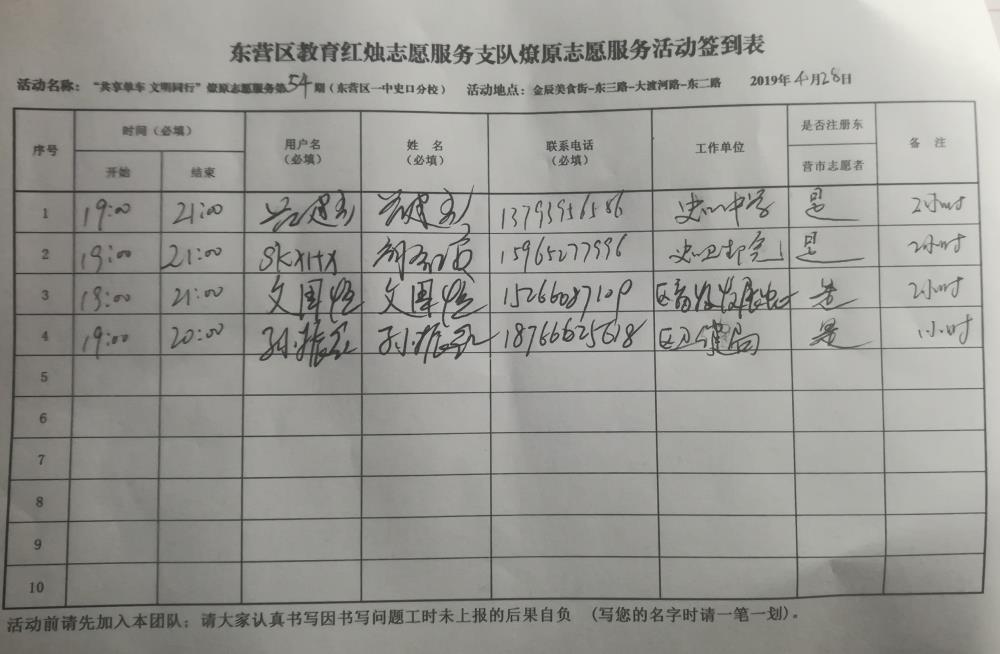 东营区教育红烛志愿服务支队燎原志愿服务活动签到表
活动名称：“共享单车 文明同行”燎原志愿服务第54期（东营区一中史口分校） 活动地点：金辰美食街-东三路-大渡河路-东二路 2019年4月28日
序号 时间（必填） 用户名（必填） 姓 名（必填） 联系电话（必填） 工作单位 是否注册东营市志愿者 备 注
开始 结束
1 19:00 21:00 13793956586 史口中学 是 2小时
2 19:00 21:00 SKXHX 15965277996 是 2小时
3 19:00 21:00 文国恒 文国恒 15266087109 2小时
4 19:00 20:00 孙振 孙振 18766625618 区卫健局 是 1小时
5
6
7
8
9
10
活动前请先加入本团队；请大家认真书写因书写问题工时未上报的后果自负 （写您的名字时请一笔一划）。